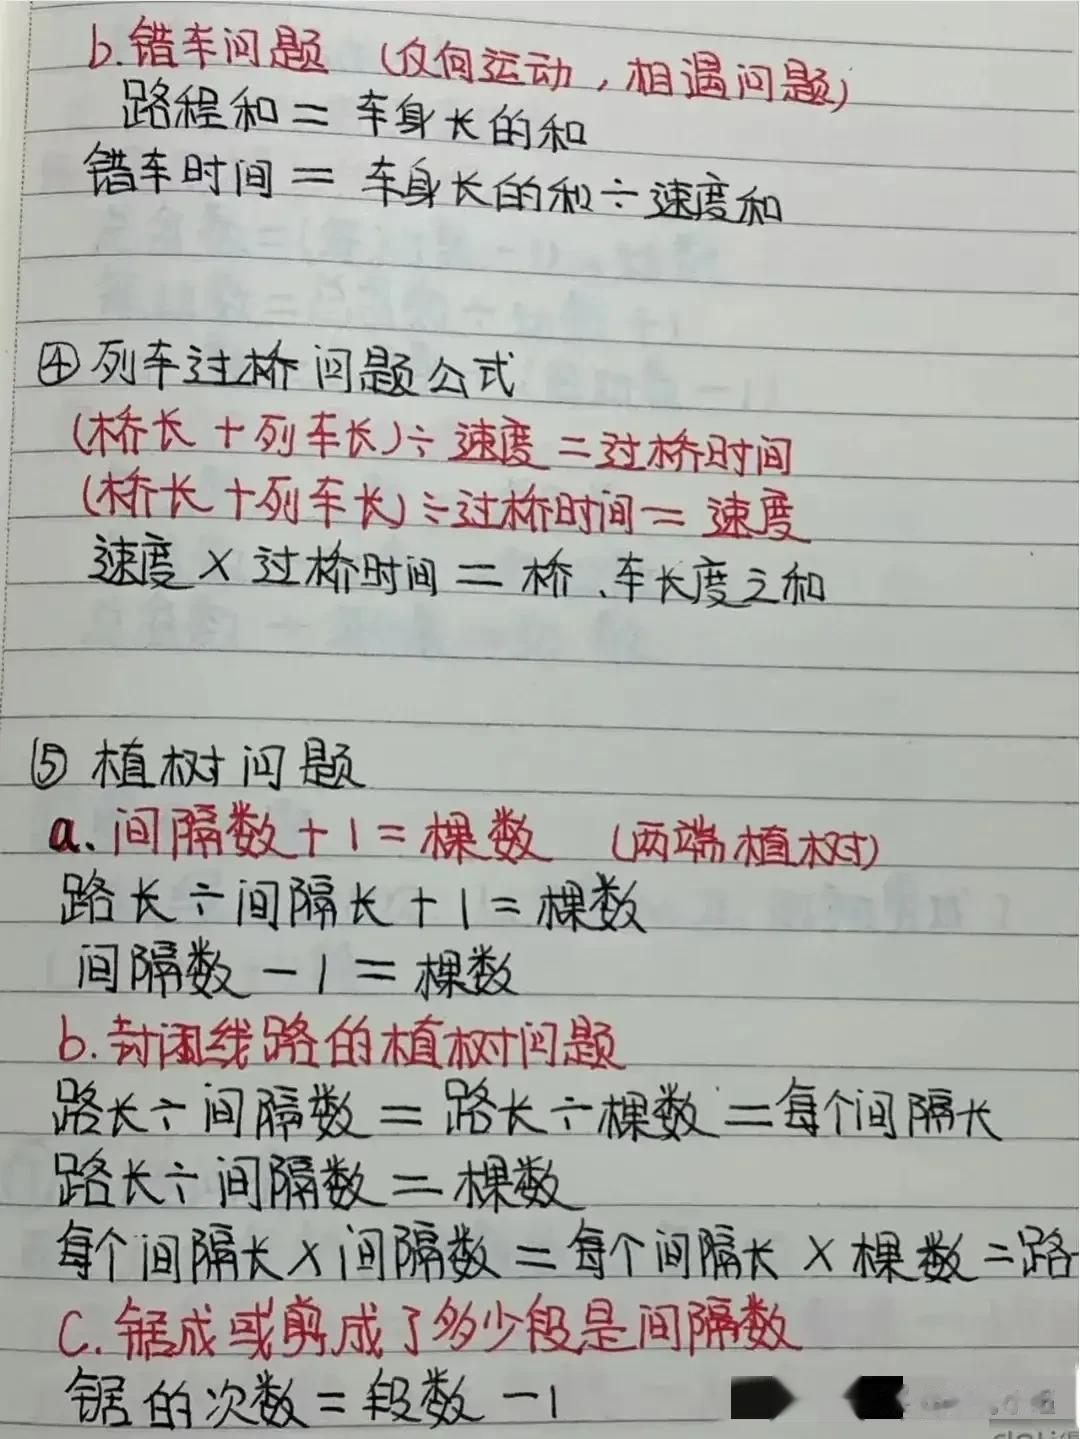 b.错车问题 (反向运动，相遇问题)
路程和＝车身长的和
错车时间＝车身长的和÷速度和
④列车过桥问题公式
(桥长＋列车长)÷速度＝过桥时间
(桥长＋列车长)÷过桥时间＝速度
速度×过桥时间＝桥、车长度之和
⑤植树问题
a.间隔数＋1＝棵数 (两端植树)
路长÷间隔长＋1＝棵数
间隔数－1＝棵数
b.封闭线路的植树问题
路长÷间隔数＝路长÷棵数＝每个间隔长
路长÷间隔数＝棵数
每个间隔长×间隔数＝每个间隔长×棵数＝路
C.锯成或剪成了多少段是间隔数
锯的次数＝段数－1